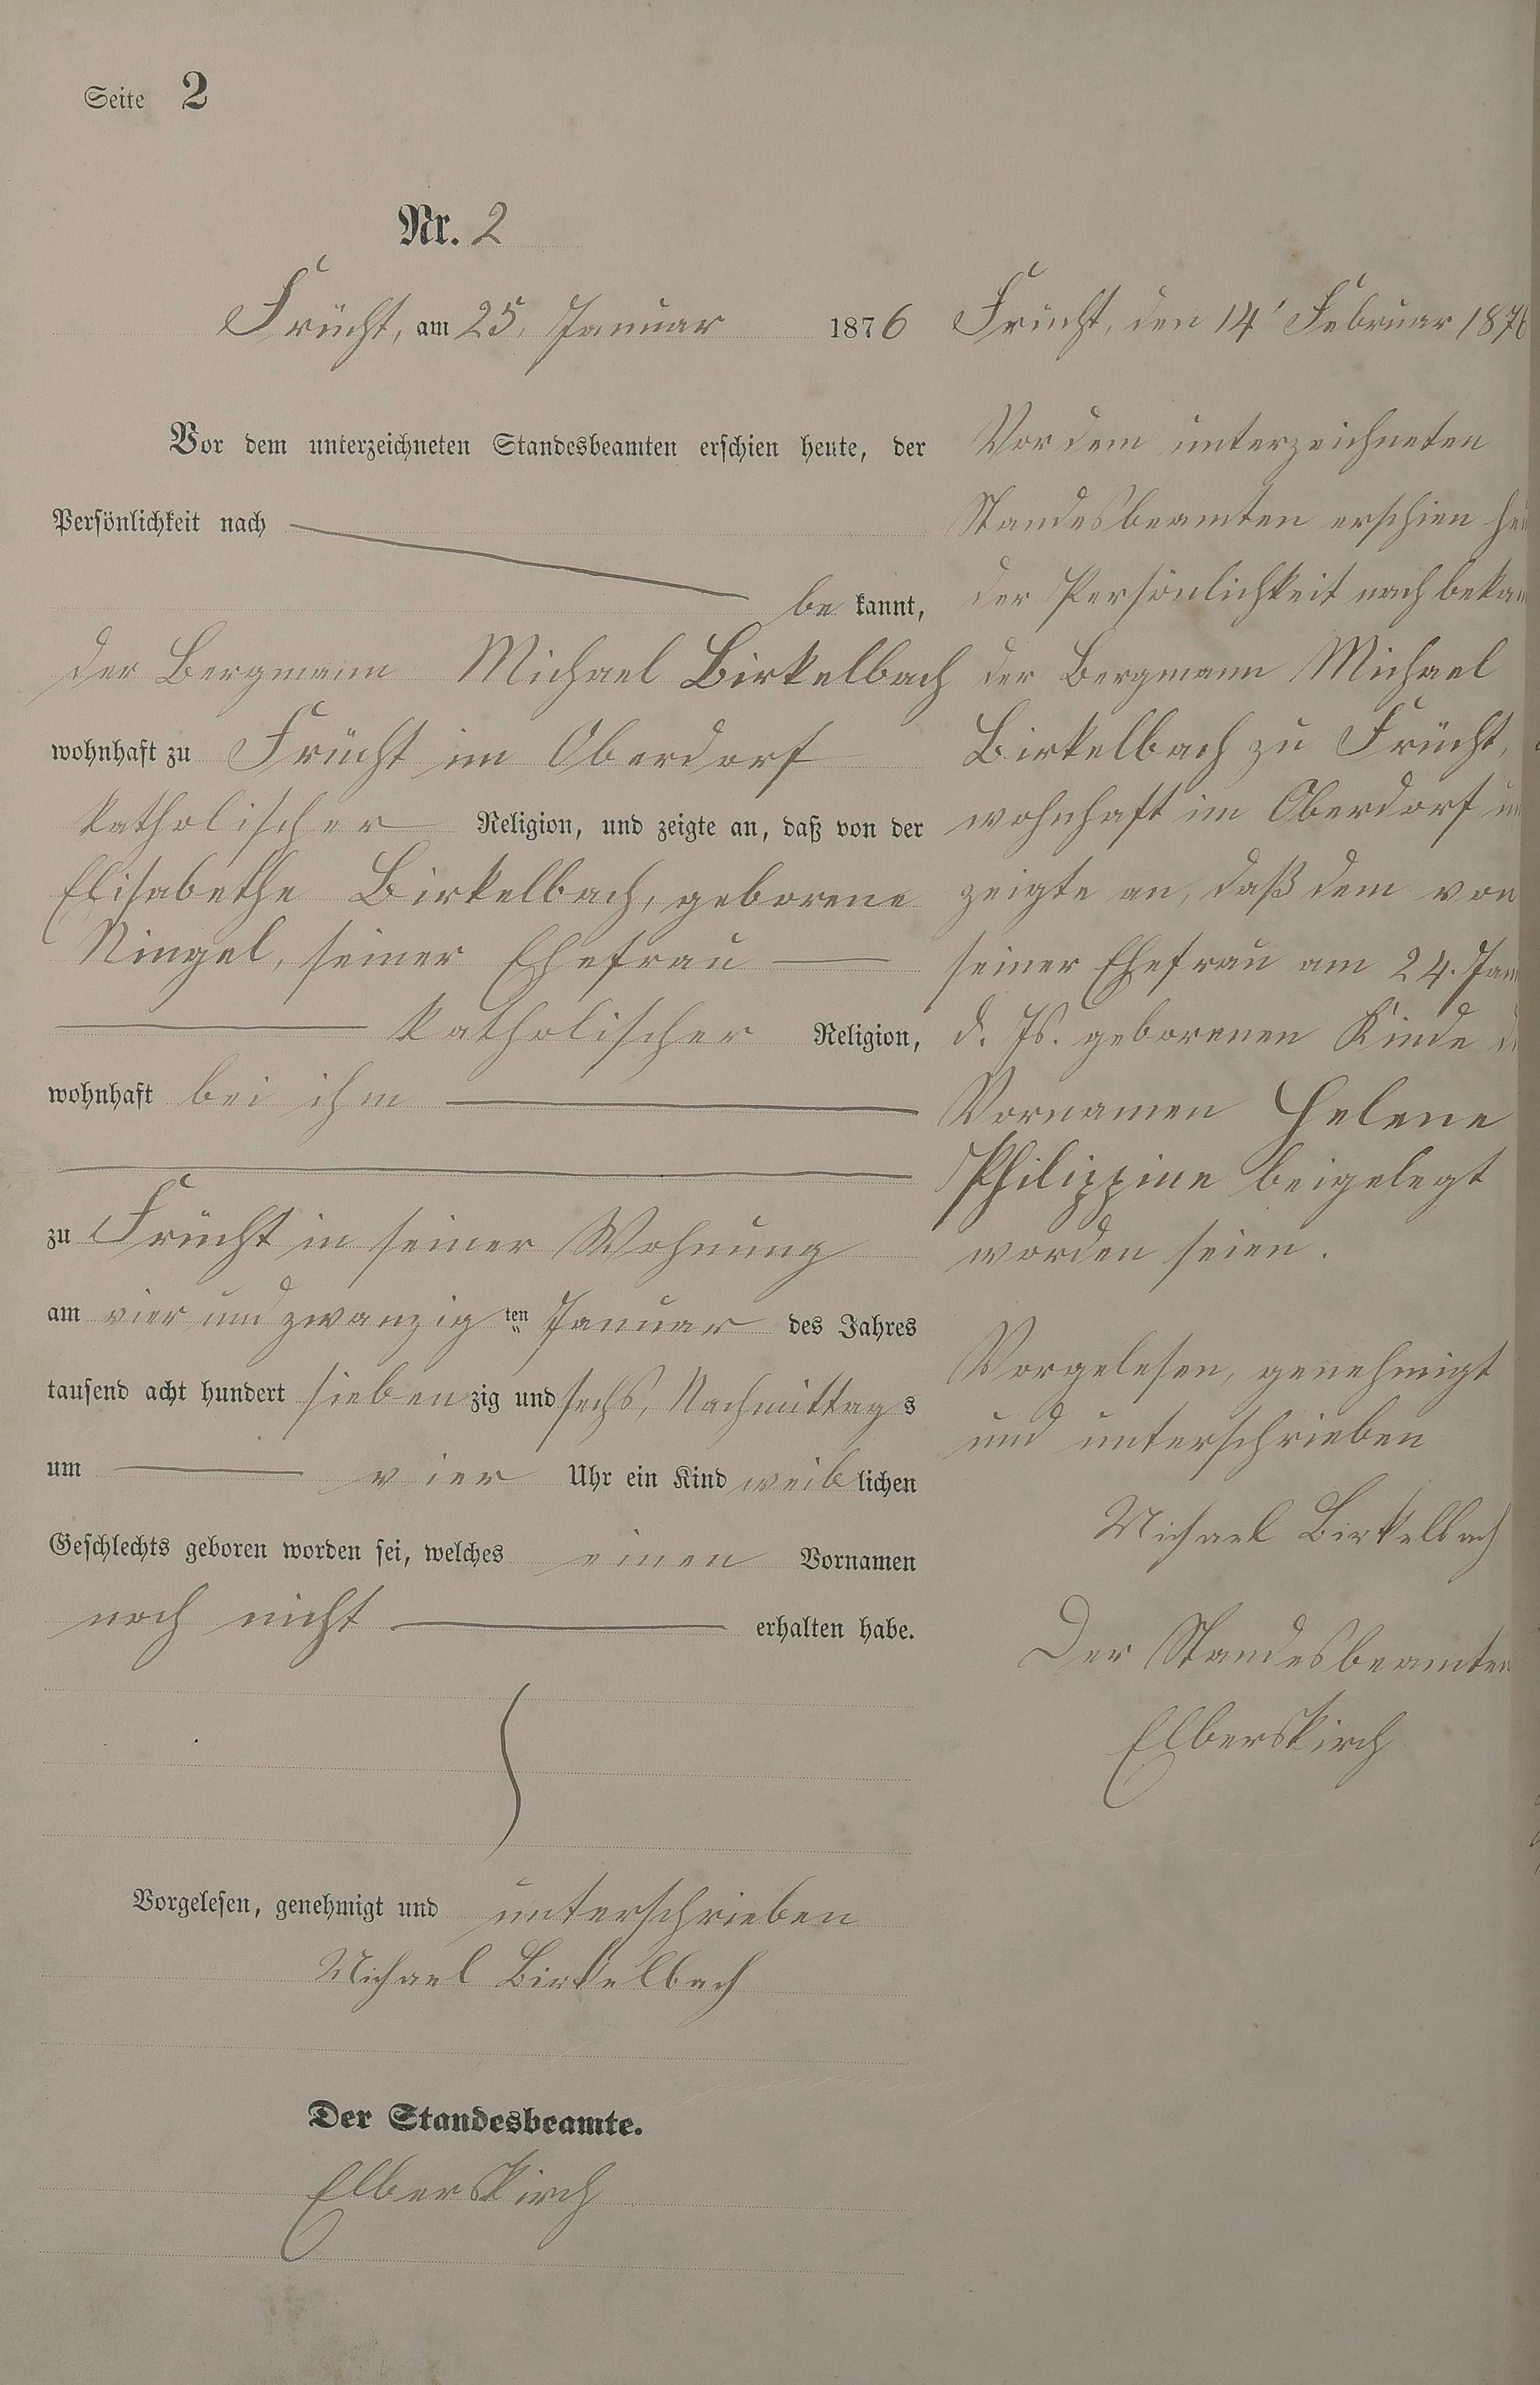 Seite 2
Nr. 2
Frücht, am 25. Januar 1876
Vor dem unterzeichneten Standesbeamten erschien heute, der
Persönlichkeit nach
be kannt,
der Bergmann Michael Birkelbach
wohnhaft zu Frücht im Oberdorf
katholischer Religion, und zeigte an, daß von der
Elisabethe Birkelbach, geborene
Ningel, seiner Ehefrau
katholischer Religion,
wohnhaft bei ihm
zu Frücht in seiner Wohnung
am vier und zwanzig ten Januar des Jahres
tausend acht hundert sieben zig und sechs, Nachmittag s
um vier Uhr ein Kind weib lichen
Geschlechts geboren worden sei, welches einen Vornamen
noch nicht erhalten habe.
Vorgelesen, genehmigt und unterschrieben
Michael Birkelbach
Der Standesbeamte.
Elberskirch
Frücht, den 14' Februar 1876
Vor dem unterzeichneten
Standesbeamten erschien
der Persönlichkeit nach
der Bergmann Michael
Birkelbach zu Frücht,
wohnhaft im Oberdorf
zeigte an, daß dem von
seiner Ehefrau am 24.
d. Js. geborenen Kinde
Vornamen Helene
Philippine beigelegt
worden seien.
Vorgelesen, genehmigt
und unterschrieben
Michael Birkelbach
Der Standesbeamte
Elberskirch